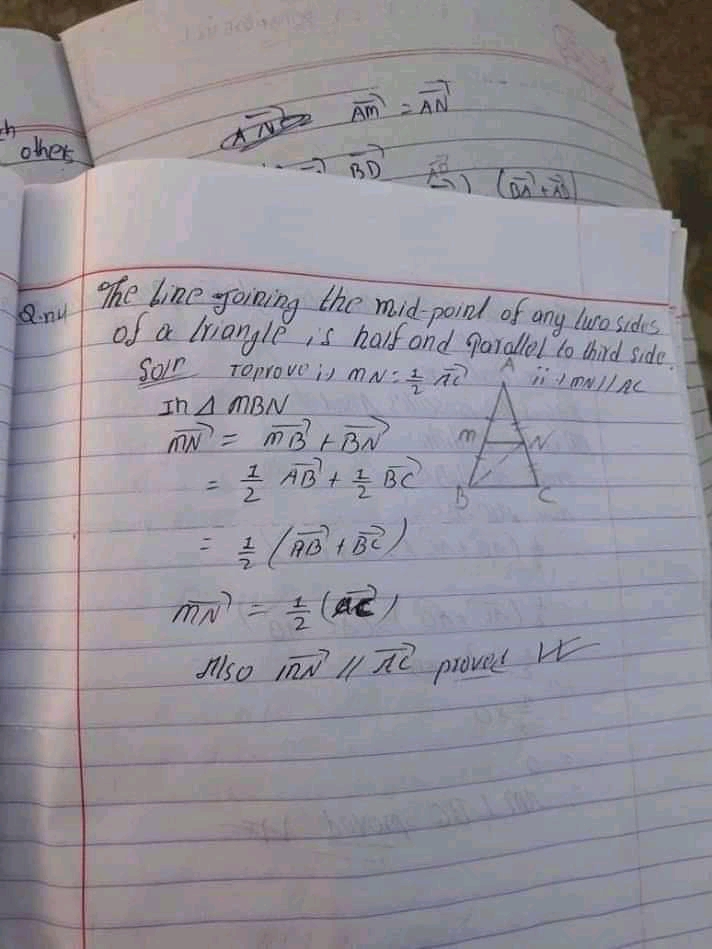 AN AM = AN
ch
others
BD AB (BA + AB)
Q.n4 The Line Joining the mid-point of any two sides
of a triangle is half and parallel to third side.
Soln To prove i) MN = 1/2 AC ii) MN // AC
In Δ MBN
MN = MB + BN
= 1/2 AB + 1/2 BC
= 1/2 (AB + BC)
MN = 1/2 (AC)
Also MN // AC proved
A
M N
B C